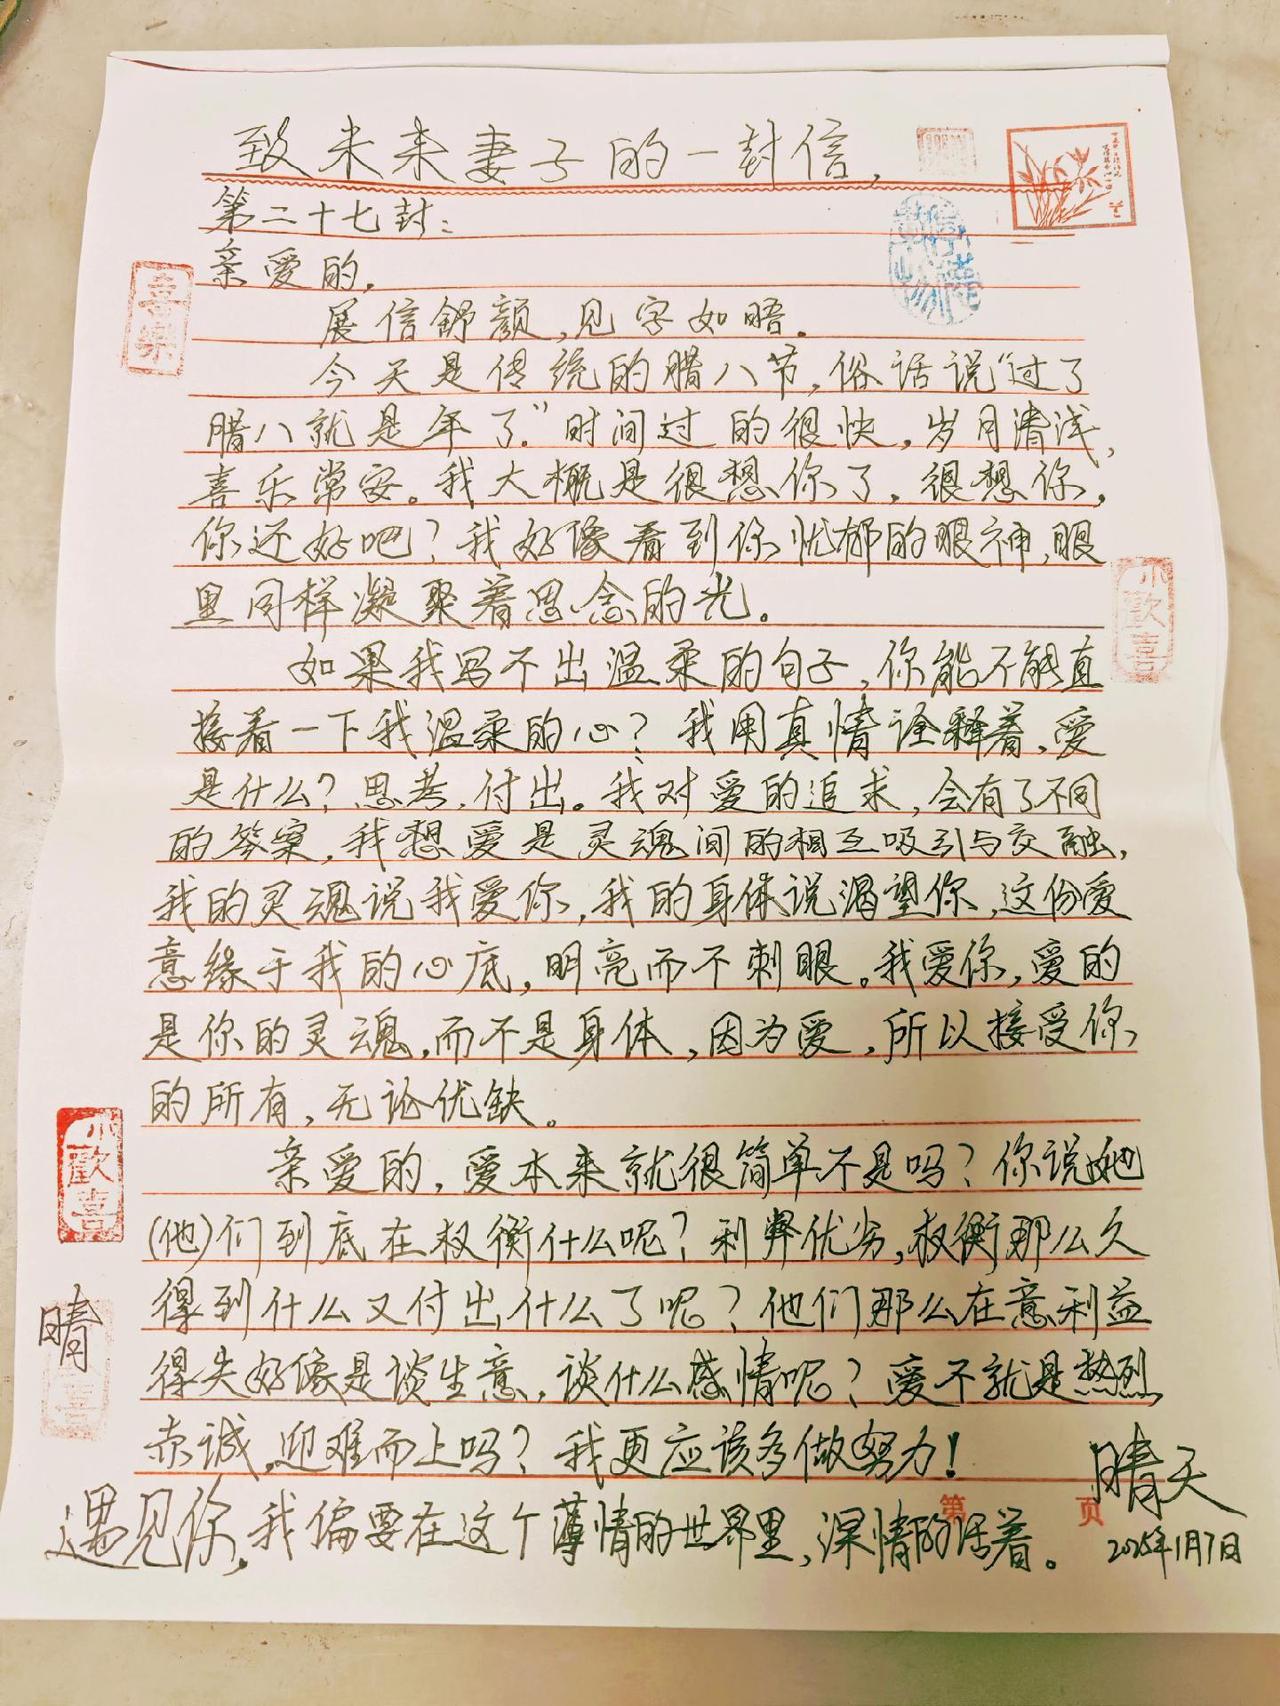 致未来妻子的一封信,
第二十七封:
亲爱的,
喜樂
展信舒颜,见字如晤.
今天是传统的腊八节,俗话说“过了
腊八就是年了.”时间过的很快,岁月清浅,
喜乐常安。我大概是很想你了,很想你,
你还好吧?我好像看到你忧郁的眼神,眼
里同样凝聚着思念的光。
小歡喜
如果我写不出温柔的句子,你能不能直
接看一下我温柔的心?我用真情诠释着,爱
是什么?思考,付出。我对爱的追求,会有了不同
的答案,我想爱是灵魂间的相互吸引与交融,
我的灵魂说我爱你,我的身体说渴望你,这份爱
意缘于我的心底,明亮而不刺眼。我爱你,爱的
是你的灵魂,而不是身体,因为爱,所以接受你
的所有,无论优缺。
小歡喜
亲爱的,爱本来就很简单不是吗?你说她
(他)们到底在权衡什么呢?利弊优劣,权衡那么久
得到什么又付出什么了呢?他们那么在意利益
晴
得失好像是谈生意,谈什么感情呢?爱不就是热烈,
赤诚,迎难而上吗?我更应该多做努力!
晴天
第 页
遇见你,我偏要在这个薄情的世界里,深情的活着。
2025年1月7日